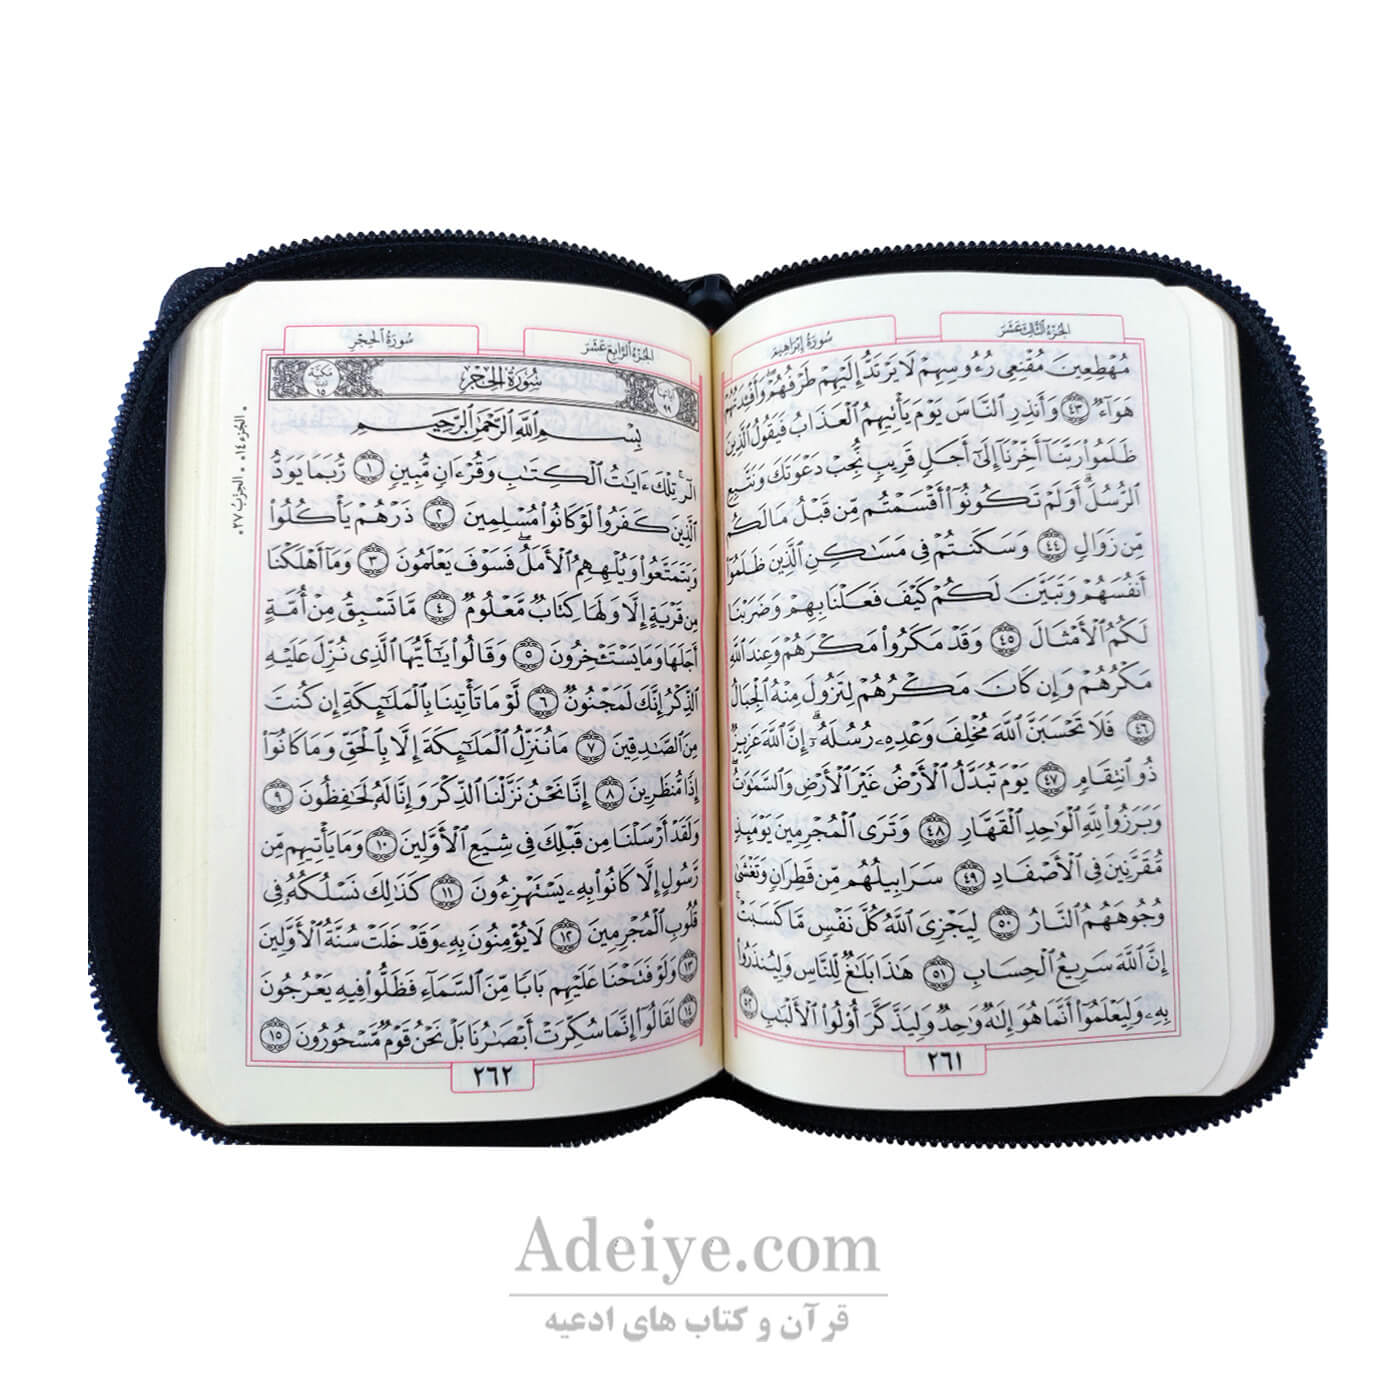 الجزء الثالث عشر
سورة إبراهيم
مُهْطِعِينَ مُقْنِعِي رُءُوسِهِمْ لَا يَرْتَدُّ إِلَيْهِمْ طَرْفُهُمْ ۖ وَأَفْئِدَتُهُمْ
هَوَاءٌ ٤٣ وَأَنذِرِ النَّاسَ يَوْمَ يَأْتِيهِمُ الْعَذَابُ فَيَقُولُ الَّذِينَ
ظَلَمُوا رَبَّنَا أَخِّرْنَا إِلَىٰ أَجَلٍ قَرِيبٍ نُّجِبْ دَعْوَتَكَ وَنَتَّبِعِ
الرُّسُلَ ۗ أَوَلَمْ تَكُونُوا أَقْسَمْتُم مِّن قَبْلُ مَا لَكُم
مِّن زَوَالٍ ٤٤ وَسَكَنتُمْ فِي مَسَاكِنِ الَّذِينَ ظَلَمُوا
أَنفُسَهُمْ وَتَبَيَّنَ لَكُمْ كَيْفَ فَعَلْنَا بِهِمْ وَضَرَبْنَا
لَكُمُ الْأَمْثَالَ ٤٥ وَقَدْ مَكَرُوا مَكْرَهُمْ وَعِندَ اللَّهِ
مَكْرُهُمْ وَإِن كَانَ مَكْرُهُمْ لِتَزُولَ مِنْهُ الْجِبَالُ
٤٦ فَلَا تَحْسَبَنَّ اللَّهَ مُخْلِفَ وَعْدِهِ رُسُلَهُ ۗ إِنَّ اللَّهَ عَزِيزٌ
ذُو انتِقَامٍ ٤٧ يَوْمَ تُبَدَّلُ الْأَرْضُ غَيْرَ الْأَرْضِ وَالسَّمَاوَاتُ ۖ
وَبَرَزُوا لِلَّهِ الْوَاحِدِ الْقَهَّارِ ٤٨ وَتَرَى الْمُجْرِمِينَ يَوْمَئِذٍ
مُّقَرَّنِينَ فِي الْأَصْفَادِ ٤٩ سَرَابِيلُهُم مِّن قَطِرَانٍ وَتَغْشَىٰ
وُجُوهَهُمُ النَّارُ ٥٠ لِيَجْزِيَ اللَّهُ كُلَّ نَفْسٍ مَّا كَسَبَتْ ۚ
إِنَّ اللَّهَ سَرِيعُ الْحِسَابِ ٥١ هَٰذَا بَلَاغٌ لِّلنَّاسِ وَلِيُنذَرُوا
بِهِ وَلِيَعْلَمُوا أَنَّمَا هُوَ إِلَٰهٌ وَاحِدٌ وَلِيَذَّكَّرَ أُولُو الْأَلْبَابِ ٥٢
٢٦١
الجزء الرابع عشر
سورة الحجر
آياتها ٩٩
سورة الحجر
مكية ١٥
بِسْمِ اللَّهِ الرَّحْمَٰنِ الرَّحِيمِ
الر ۚ تِلْكَ آيَاتُ الْكِتَابِ وَقُرْءَانٍ مُّبِينٍ ١ رُّبَمَا يَوَدُّ
الَّذِينَ كَفَرُوا لَوْ كَانُوا مُسْلِمِينَ ٢ ذَرْهُمْ يَأْكُلُوا
وَيَتَمَتَّعُوا وَيُلْهِهِمُ الْأَمَلُ ۖ فَسَوْفَ يَعْلَمُونَ ٣ وَمَا أَهْلَكْنَا
مِن قَرْيَةٍ إِلَّا وَلَهَا كِتَابٌ مَّعْلُومٌ ٤ مَّا تَسْبِقُ مِنْ أُمَّةٍ
أَجَلَهَا وَمَا يَسْتَـْٔخِرُونَ ٥ وَقَالُوا يَا أَيُّهَا الَّذِي نُزِّلَ عَلَيْهِ
الذِّكْرُ إِنَّكَ لَمَجْنُونٌ ٦ لَّوْ مَا تَأْتِينَا بِالْمَلَائِكَةِ إِن كُنتَ
مِنَ الصَّادِقِينَ ٧ مَا نُنَزِّلُ الْمَلَائِكَةَ إِلَّا بِالْحَقِّ وَمَا كَانُوا
إِذًا مُّنظَرِينَ ٨ إِنَّا نَحْنُ نَزَّلْنَا الذِّكْرَ وَإِنَّا لَهُ لَحَافِظُونَ ٩
وَلَقَدْ أَرْسَلْنَا مِن قَبْلِكَ فِي شِيَعِ الْأَوَّلِينَ ١٠ وَمَا يَأْتِيهِم مِّن
رَّسُولٍ إِلَّا كَانُوا بِهِ يَسْتَهْزِءُونَ ١١ كَذَٰلِكَ نَسْلُكُهُ فِي
قُلُوبِ الْمُجْرِمِينَ ١٢ لَا يُؤْمِنُونَ بِهِ ۖ وَقَدْ خَلَتْ سُنَّةُ الْأَوَّلِينَ
١٣ وَلَوْ فَتَحْنَا عَلَيْهِم بَابًا مِّنَ السَّمَاءِ فَظَلُّوا فِيهِ يَعْرُجُونَ
١٤ لَقَالُوا إِنَّمَا سُكِّرَتْ أَبْصَارُنَا بَلْ نَحْنُ قَوْمٌ مَّسْحُورُونَ ١٥
٢٦٢
الجزء ١٤ الحزب ٢٧
Adeiye.com
قرآن و کتاب های ادعیه